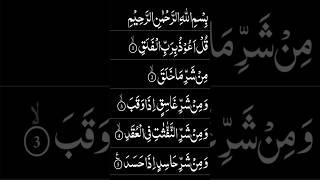 بِسْمِ اللهِ الرَّحْمٰنِ الرَّحِيْمِ
قُلْ اَعُوْذُ بِرَبِّ الْفَلَقِ ۙ﴿۱﴾
مِنْ شَرِّ مَا خَلَقَ ۙ﴿۲﴾
وَ مِنْ شَرِّ غَاسِقٍ اِذَا وَقَبَ ۙ﴿۳﴾
وَ مِنْ شَرِّ النَّفّٰثٰتِ فِي الْعُقَدِ ۙ﴿۴﴾
وَ مِنْ شَرِّ حَاسِدٍ اِذَا حَسَدَ ﴿۵﴾